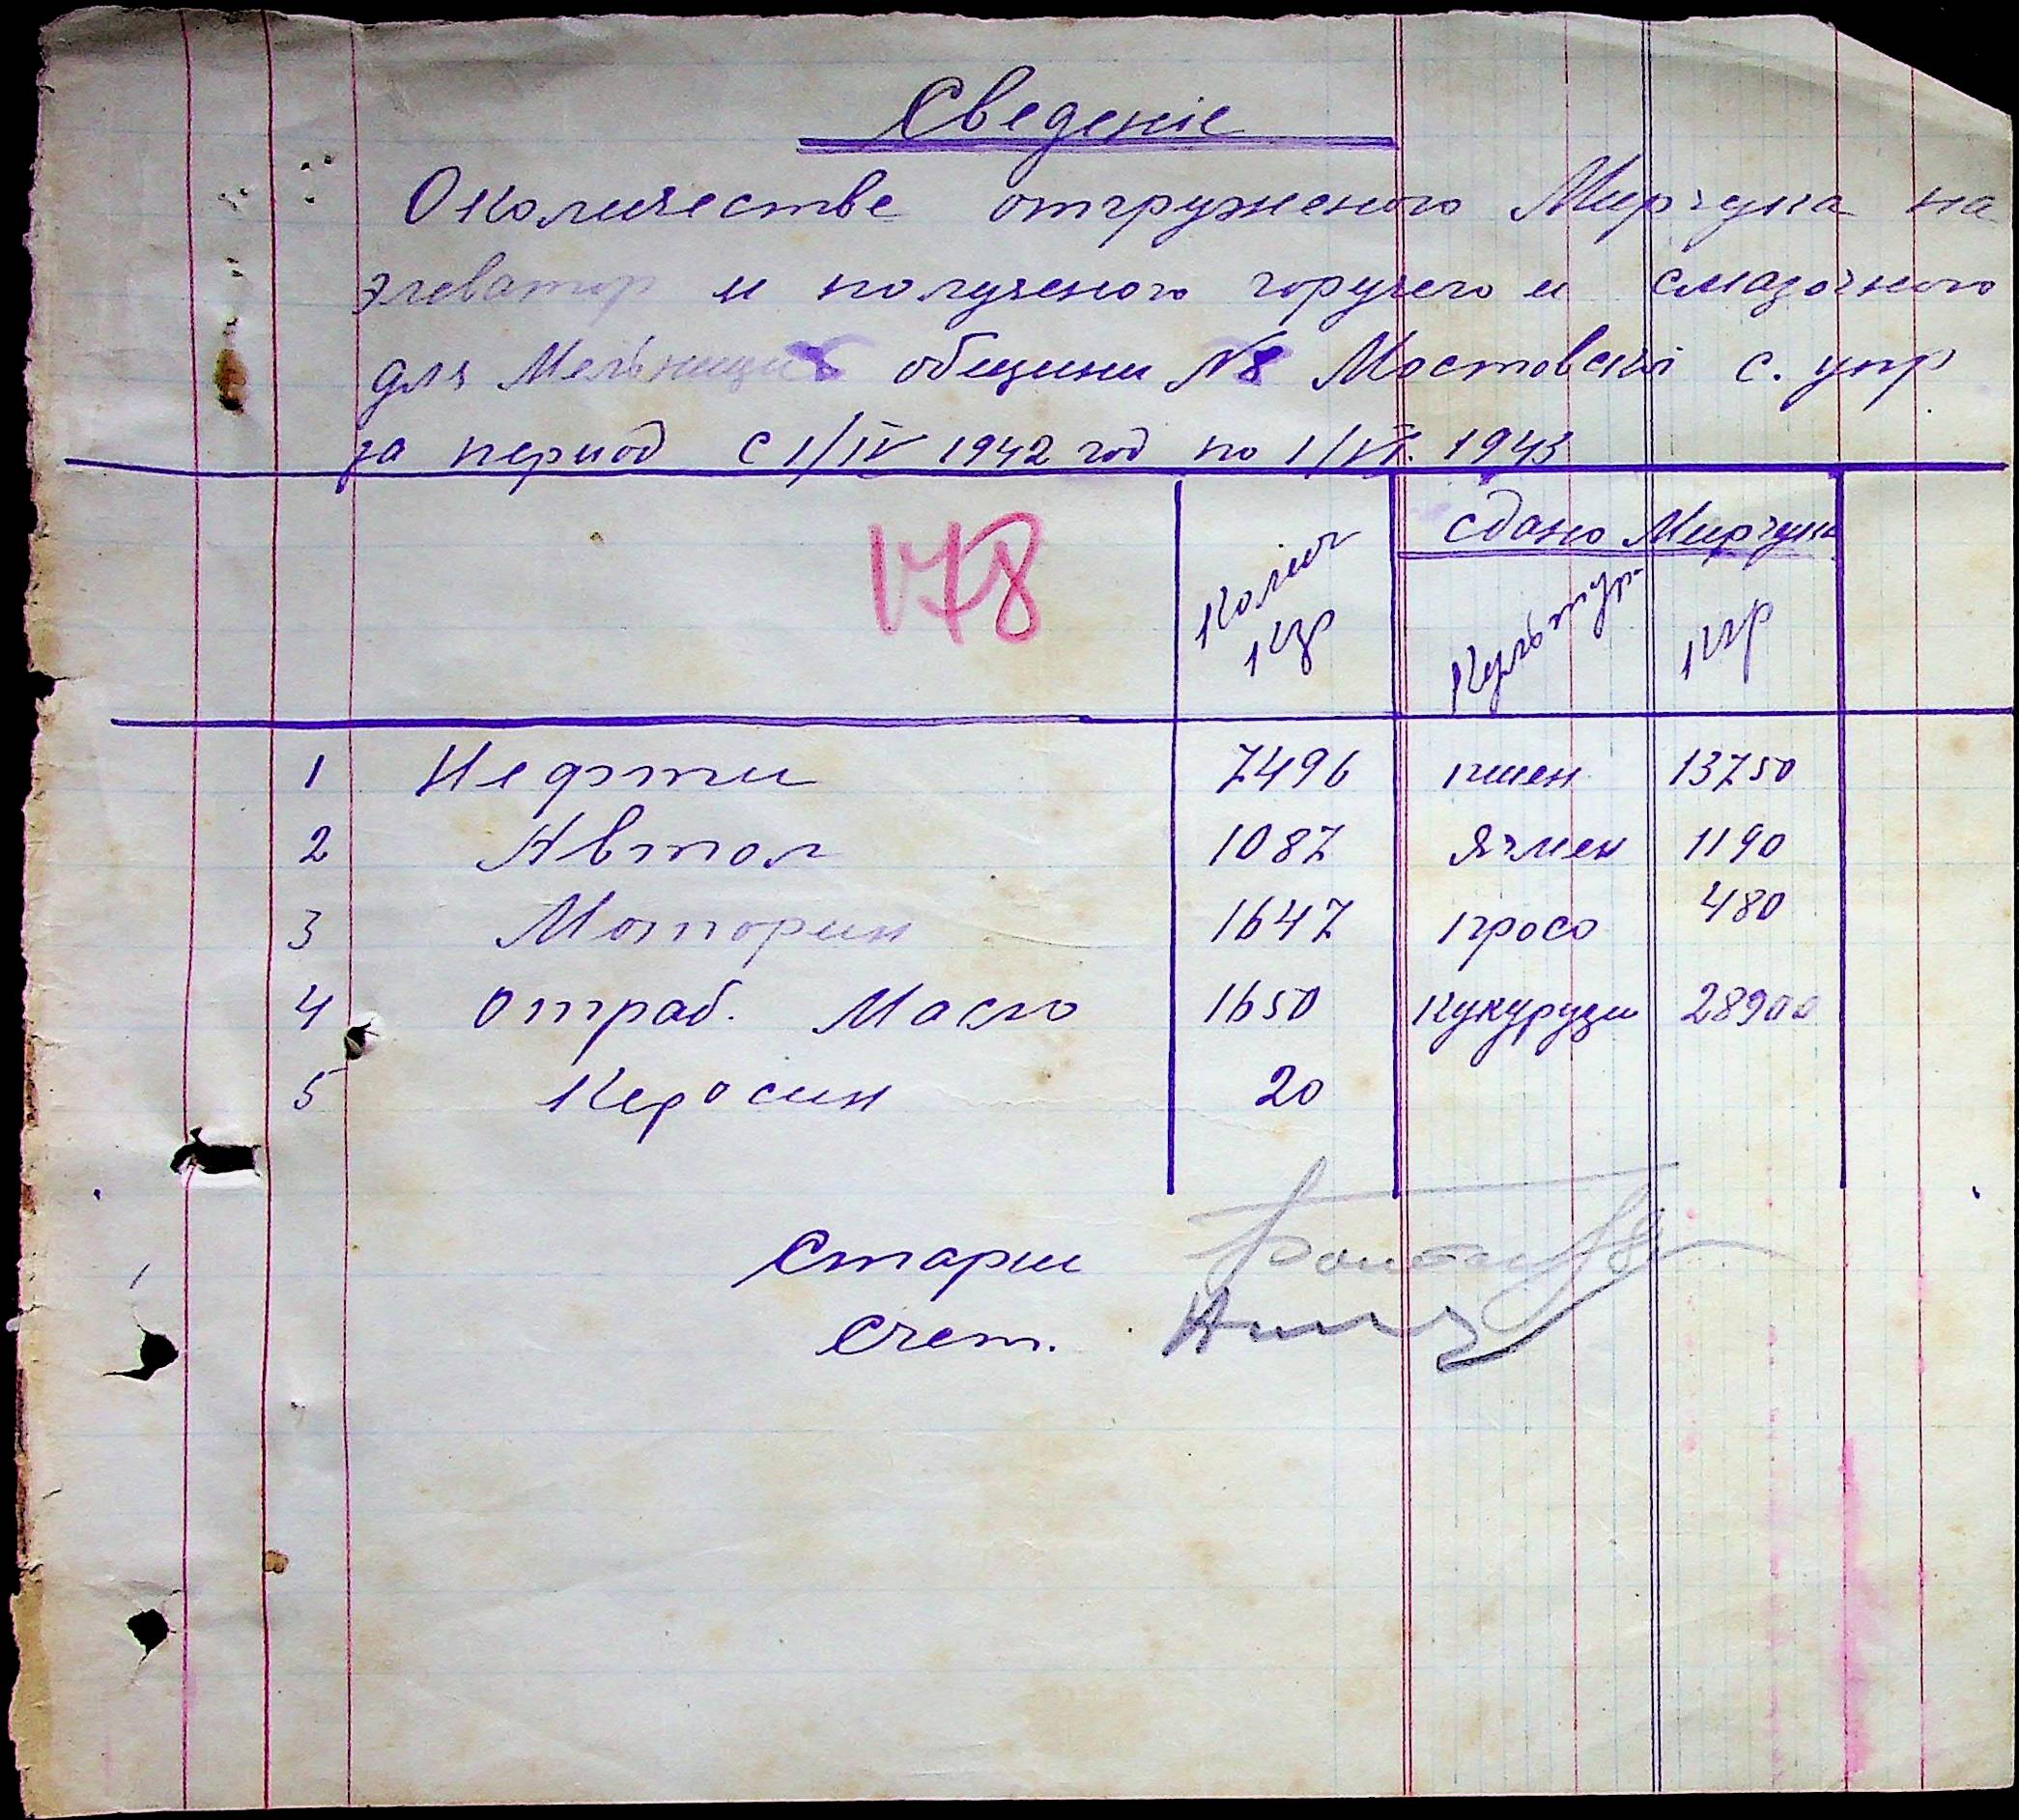 Сведеніе
О количестве отгруженого Мирчука на
элеватор и полученого горучего и смазочного
для Мельници общини №8 Мостовскі с. упр
за период с 1/IV 1942 год по 1/VI. 1943
178
Колич Кгр
сдано Мирчука
Культур. Кгр
1 Нефти 7496 пшен 13750
2 Автол 1087 Ячмен 1190
3 Моторин 1647 просо 480
4 Отраб. Масло 1650 Кукурузи 28900
5 Керосин 20
Старш
Счет.